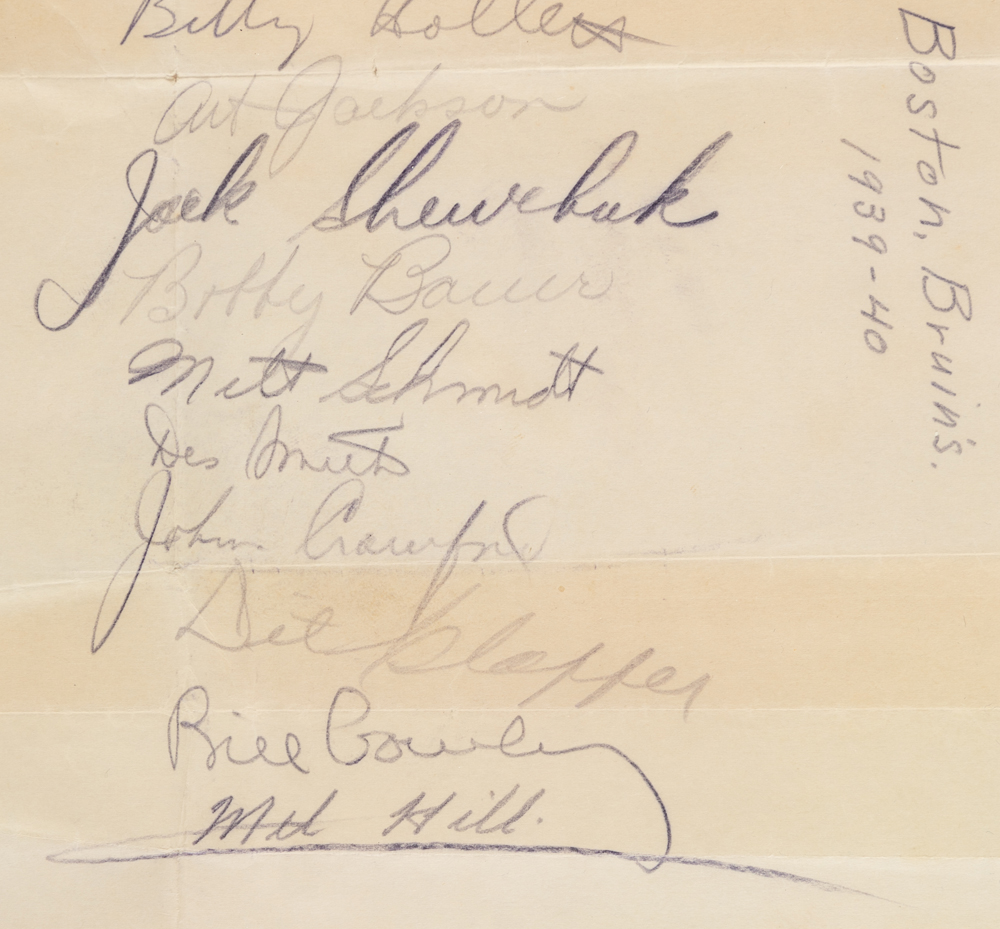 Billy Hollett
Art Jackson
Jack Shewchuk
Bobby Bauer
Milt Schmidt
Des Smith
John Crawford
Dit Clapper
Bill Cowley
Mel Hill.
Boston, Bruin's.
1939-40